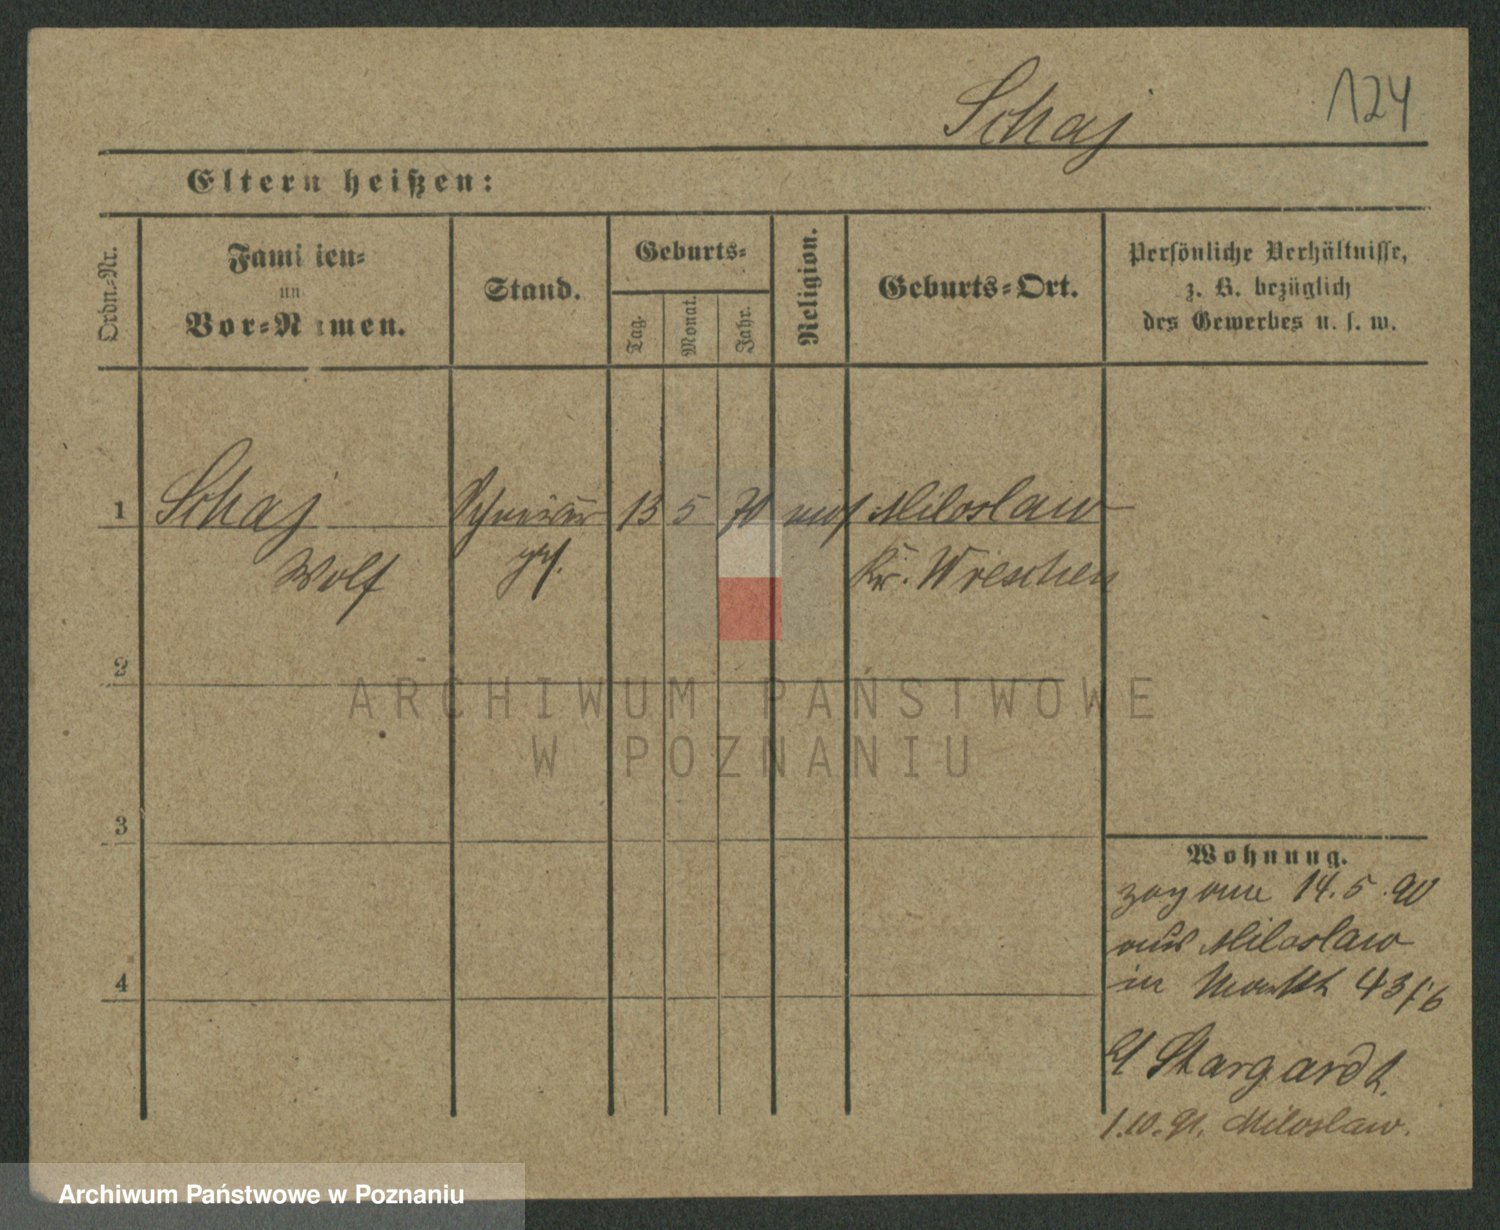 Schaj
124
Eltern heißen:
Ordn.-Nr.
Familien-
un
Vor-Namen.
Stand.
Geburts-
Tag.
Monat.
Jahr.
Religion.
Geburts-Ort.
Persönliche Verhältnisse,
z. B. bezüglich
des Gewerbes u. s. w.
1 Schaj 13 5 70 mos Miloslaw
Wolf Kr. Wreschen
2
3
4
Wohnung.
14. 5. 90
aus Miloslaw
in Markt 43/6
Stargardt.
1.10.91. Miloslaw.
ARCHIWUM PAŃSTWOWE
W POZNANIU
Archiwum Państwowe w Poznaniu